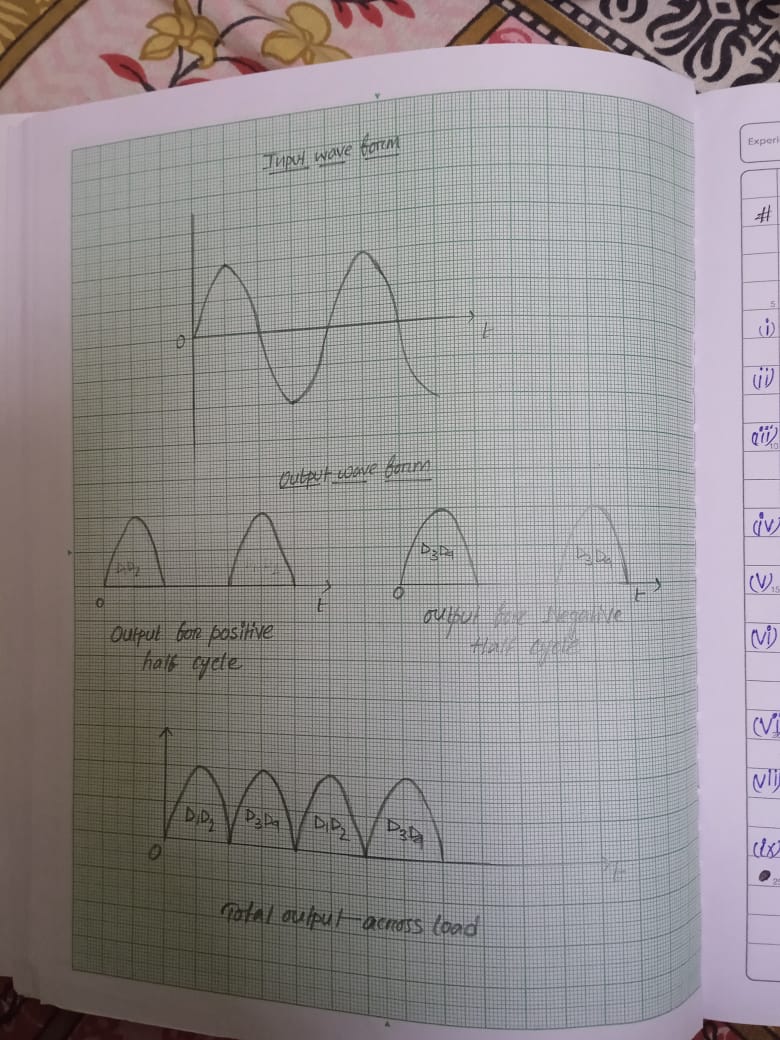 Input wave form
O
t
Output wave form
D1D2
O
t
Output for positive
half cycle
D3D4
D3D4
O
t
Output for Negative
Half cycle
D1D2
D3D4
D1D2
D3D4
O
t
Total output across load
Experi
#
(i)
(ii)
(iii)
(iv)
(v)
(vi)
(ix)